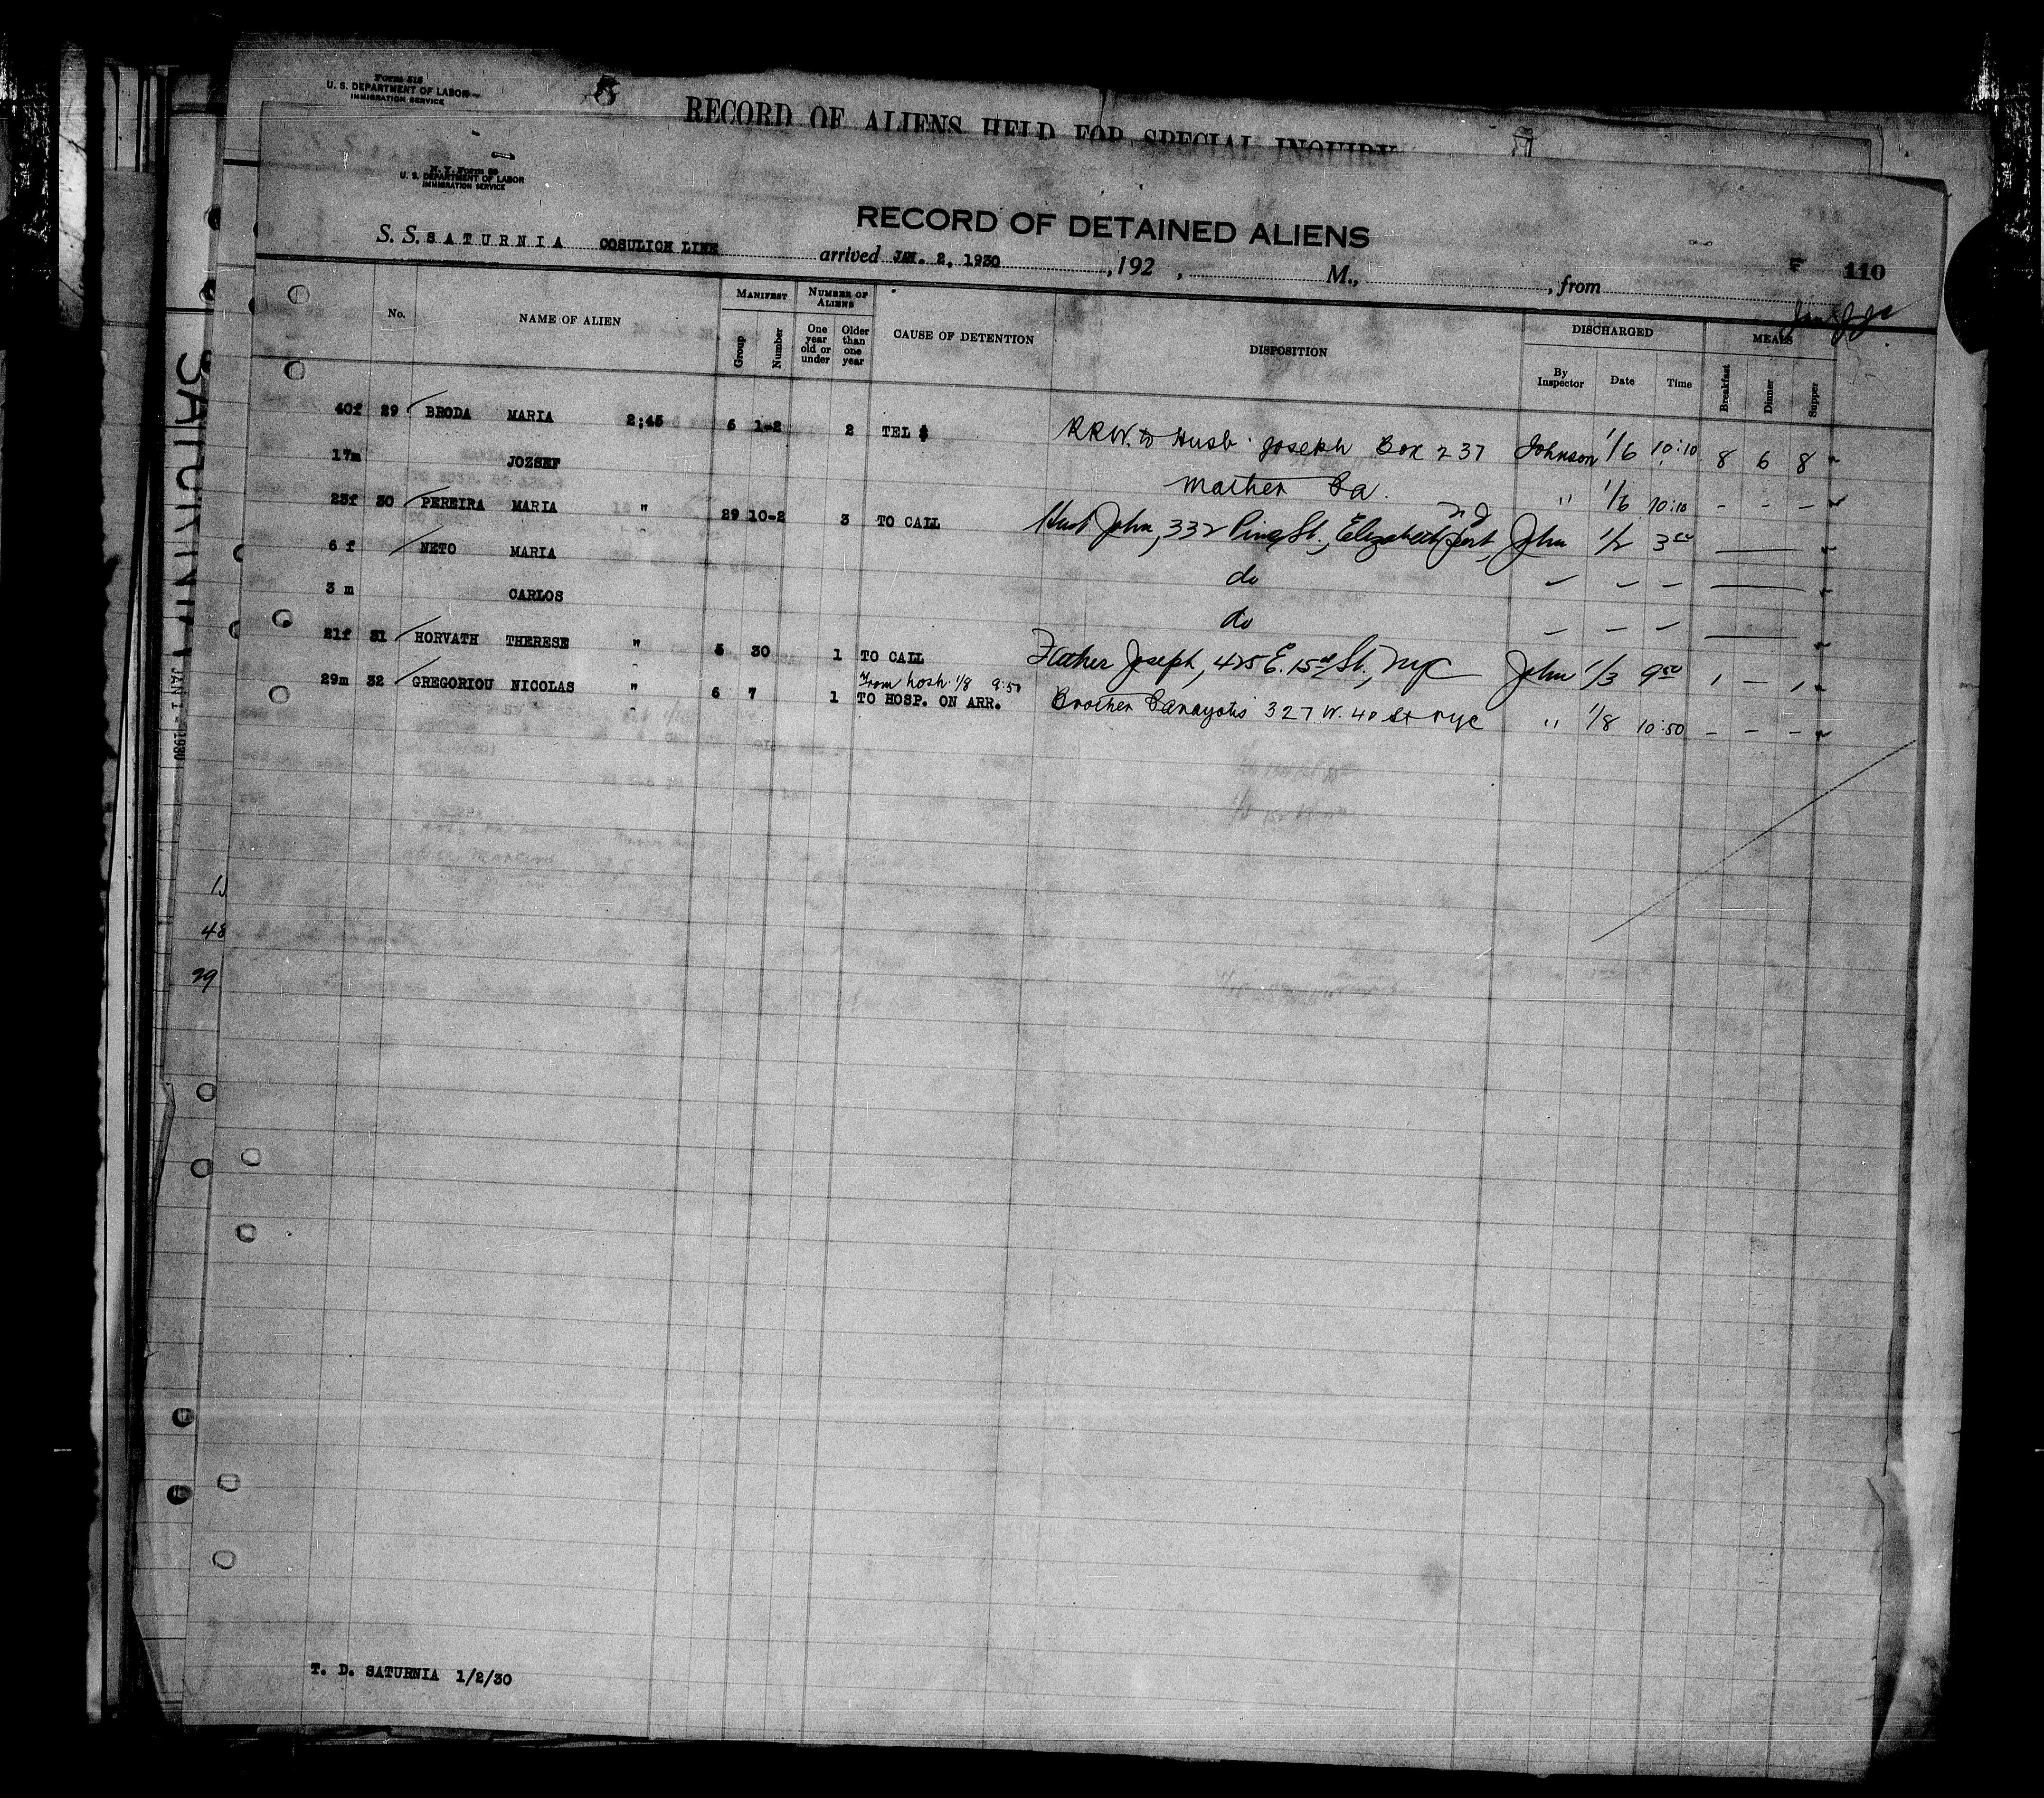 Form 518
U. S. DEPARTMENT OF LABOR
IMMIGRATION SERVICE
RECORD OF ALIENS HELD FOR SPECIAL INQUIRY
U. S. DEPARTMENT OF LABOR
IMMIGRATION SERVICE
RECORD OF DETAINED ALIENS
S. S. SATURNIA COSULICH LINE arrived JAN. 2, 1930 , 192 , M., , from
110
No. NAME OF ALIEN MANIFEST NUMBER OF ALIENS CAUSE OF DETENTION DISPOSITION DISCHARGED MEALS
Group Number One year old or under Older than one year By Inspector Date Time Breakfast Dinner Supper
40f 29 BRODA MARIA 2;45 6 1-2 2 TEL $ RRW. to Husb. Joseph Box 237 Johnson 1/6 10:10 8 6 8
17m JOZSEF Mather Pa. " 1/6 10:10 - - -
23f 30 PEREIRA MARIA " 29 10-2 3 TO CALL Husb John, 332 Pine St., Elizabethport, NJ John 1/2 3 00
6 f NETO MARIA do
3 m CARLOS do
21f 31 HORVATH THERESE " 5 30 1 TO CALL Father Joseph, 425 E. 15th St., NYC John 1/3 9 00 1 - 1
From hosp. 1/8 9:50
29m 32 GREGORIOU NICOLAS " 6 7 1 TO HOSP. ON ARR. Brother Panayotis 327 W. 40 St NYC " 1/8 10:50 - - -
SATURNIA
JAN 1 - 1930
48
29
T. D. SATURNIA 1/2/30